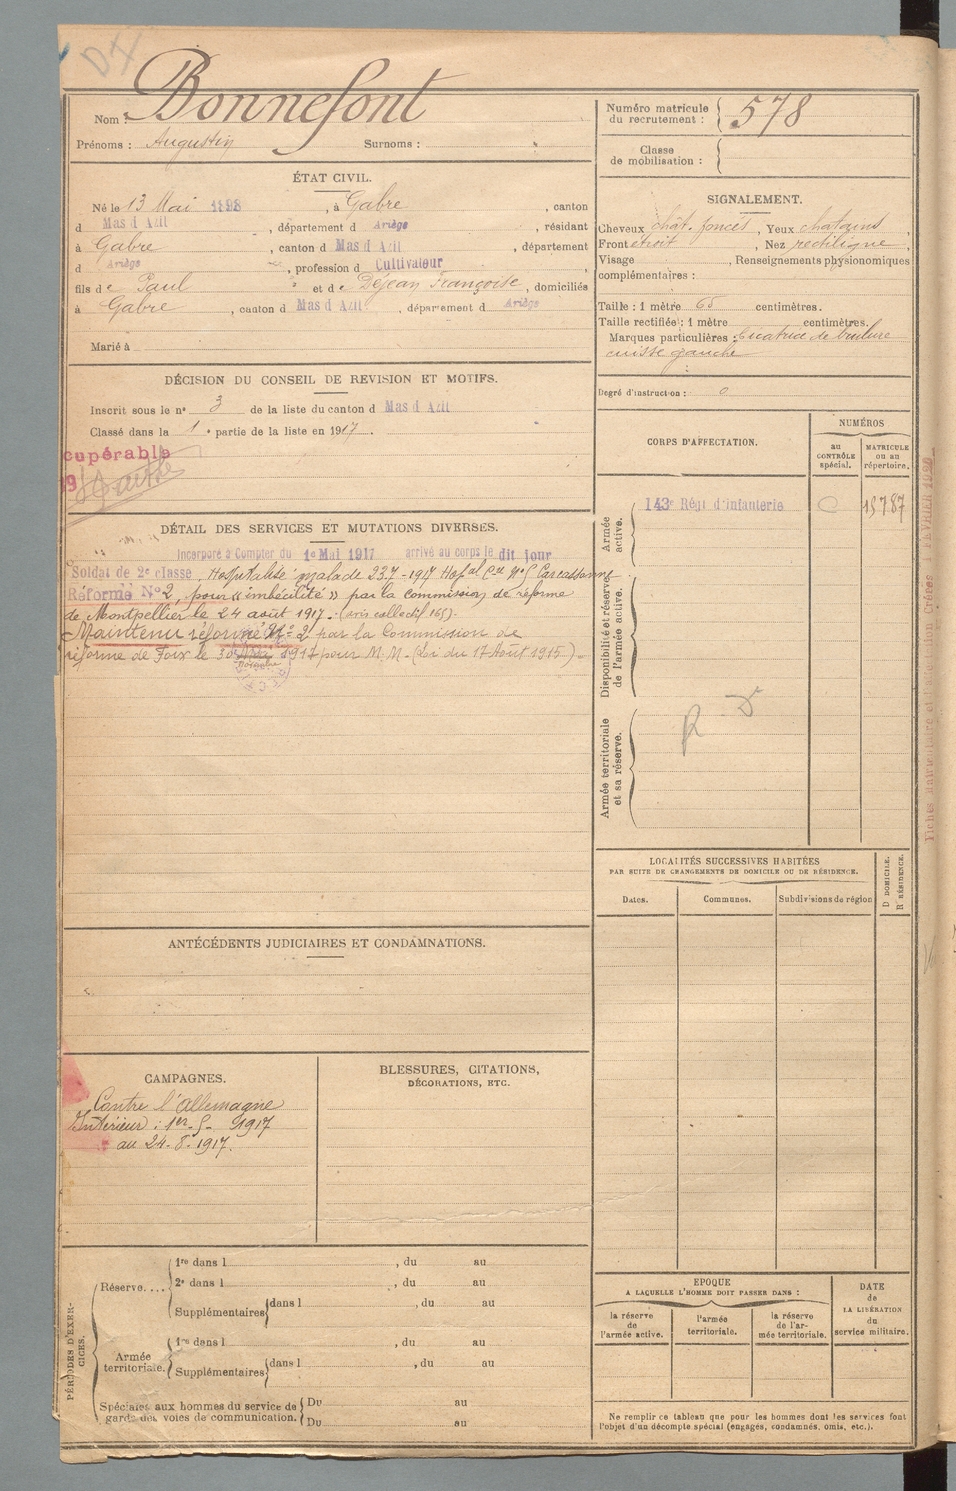 Bonnefont
Nom :
Prénoms : Augustin Surnoms :
Numéro matricule du recrutement : 578
Classe de mobilisation :
ÉTAT CIVIL.
Né le 13 Mai 1898, à Gabre, canton
d Mas d Azil, département d Ariège, résidant
à Gabre, canton d Mas d Azil, département
d Ariège, profession d Cultivateur
fils de Paul et de Déjean Françoise, domiciliés
à Gabre, canton d Mas d Azil, département d Ariège
Marié à
SIGNALEMENT.
Cheveux chât. foncés, Yeux chatains,
Front étroit, Nez rectiligne,
Visage, Renseignements physionomiques
complémentaires :
Taille : 1 mètre 65 centimètres.
Taille rectifiée : 1 mètre centimètres.
Marques particulières : Cicatrice de brulure
cuisse gauche
Degré d'instruction : 0
DÉCISION DU CONSEIL DE REVISION ET MOTIFS.
Inscrit sous le nº 3 de la liste du canton d Mas d Azil
Classé dans la 1e partie de la liste en 1917.
cupérable
DÉTAIL DES SERVICES ET MUTATIONS DIVERSES.
Incorporé à Compter du 1e Mai 1917 arrivé au corps le dit jour
Soldat de 2e classe. Hospitalisé malade 23.7-1917 Carcassonne
Réformé Nº 2, pour « imbécilité » par la Commission de réforme
de Montpellier le 24 août 1917. (avis collectif 165).
Maintenu réformé Nº 2 par la Commission de
réforme de Foix le 30 1917 pour M.M. (Loi du 17 Août 1915)
CORPS D'AFFECTATION.
NUMÉROS
au CONTRÔLE spécial.
MATRICULE ou au répertoire.
Armée active.
143e Régt d'Infanterie 15787
Disponibilité et réserve de l'armée active.
Armée territoriale et sa réserve.
R D
LOCALITÉS SUCCESSIVES HABITÉES
PAR SUITE DE CHANGEMENTS DE DOMICILE OU DE RÉSIDENCE.
Dates.
Communes.
Subdivisions de région
D DOMICILE.
R RÉSIDENCE.
ANTÉCÉDENTS JUDICIAIRES ET CONDAMNATIONS.
CAMPAGNES.
Contre l'Allemagne
Intérieur : 1er-5-1917
au 24-8-1917.
BLESSURES, CITATIONS,
DÉCORATIONS, ETC.
PÉRIODES D'EXERCICES.
Réserve....
1re dans l, du au
2e dans l, du au
Supplémentaires dans l, du au
Armée territoriale.
1re dans l, du au
Supplémentaires dans l, du au
Spéciales aux hommes du service de
garde des voies de communication.
Du au
Du au
EPOQUE
A LAQUELLE L'HOMME DOIT PASSER DANS :
la réserve de l'armée active.
l'armée territoriale.
la réserve de l'armée territoriale.
DATE de LA LIBÉRATION du service militaire.
Ne remplir ce tableau que pour les hommes dont les services font
l'objet d'un décompte spécial (engagés, condamnés, omis, etc.).